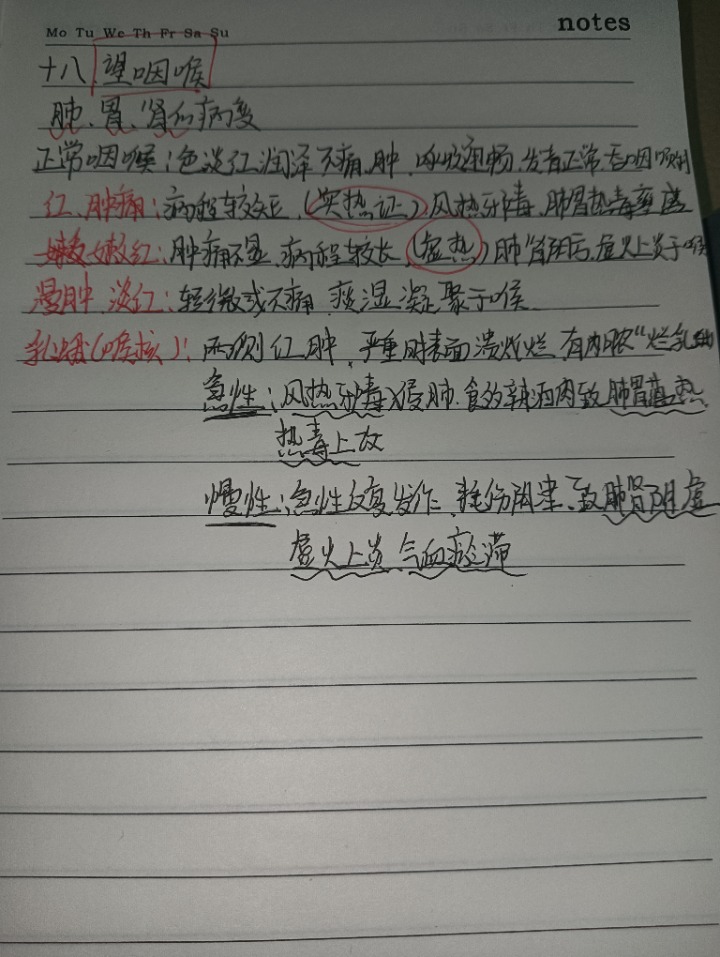 Mo Tu We Th Fr Sa Su
notes
十八、望咽喉
肺、胃、肾的病变
正常咽喉:色淡红润泽不痛、肿、呼吸通畅、发音正常、吞咽顺利
红、肿痛:病程较短、(实热证)风热邪毒、肺胃热毒壅盛
嫩红:肿痛不显、病程较长、(虚热)肺肾阴亏、虚火上炎于喉
漫肿、淡红:轻微或不痛、痰湿凝聚于喉
乳蛾(喉核):两侧红肿、严重时表面溃烂、有脓"烂乳蛾
急性:风热邪毒入侵肺、食多辣酒肉致肺胃蕴热
热毒上攻
慢性:急性反复发作、耗伤阴津、致肺肾阴虚
虚火上炎、气血瘀滞